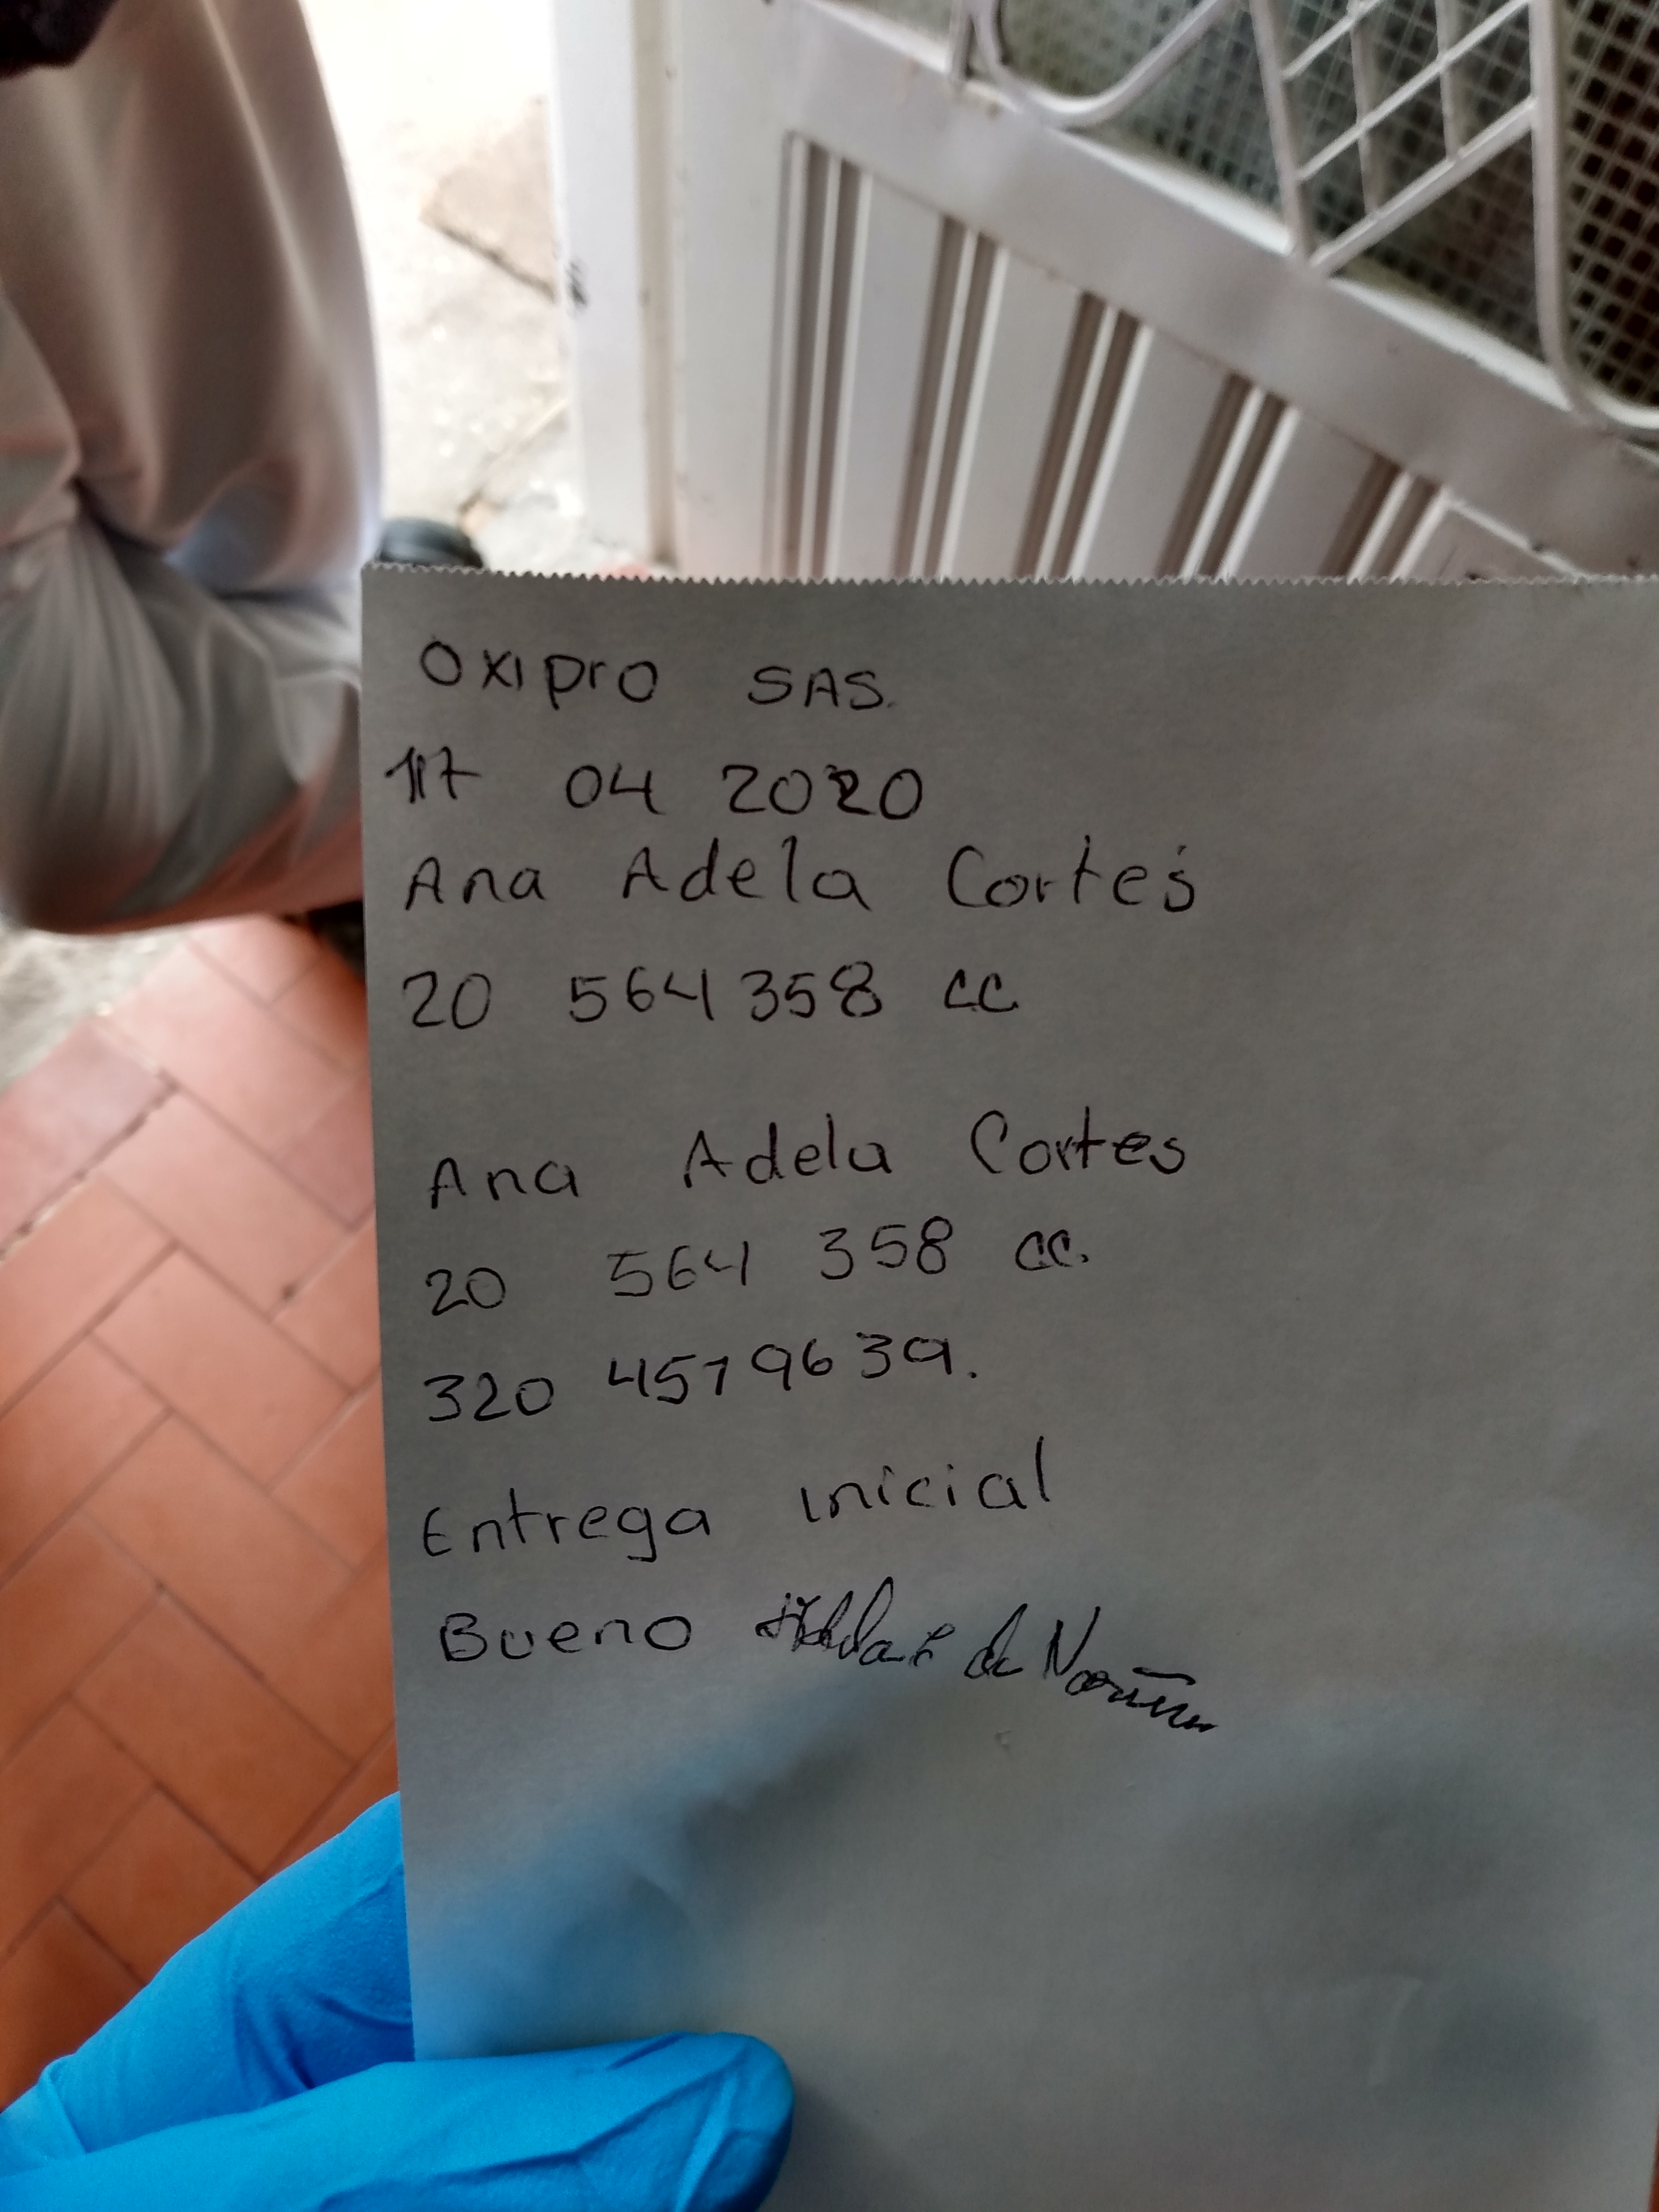 Oxipro SAS.
17 04 2020
Ana Adela Cortes
20 564358 CC
Ana Adela Cortes
20 564 358 CC.
320 4579639.
Entrega inicial
Bueno